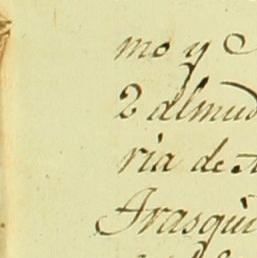 mo y
2 almud
ria de
Frasqui